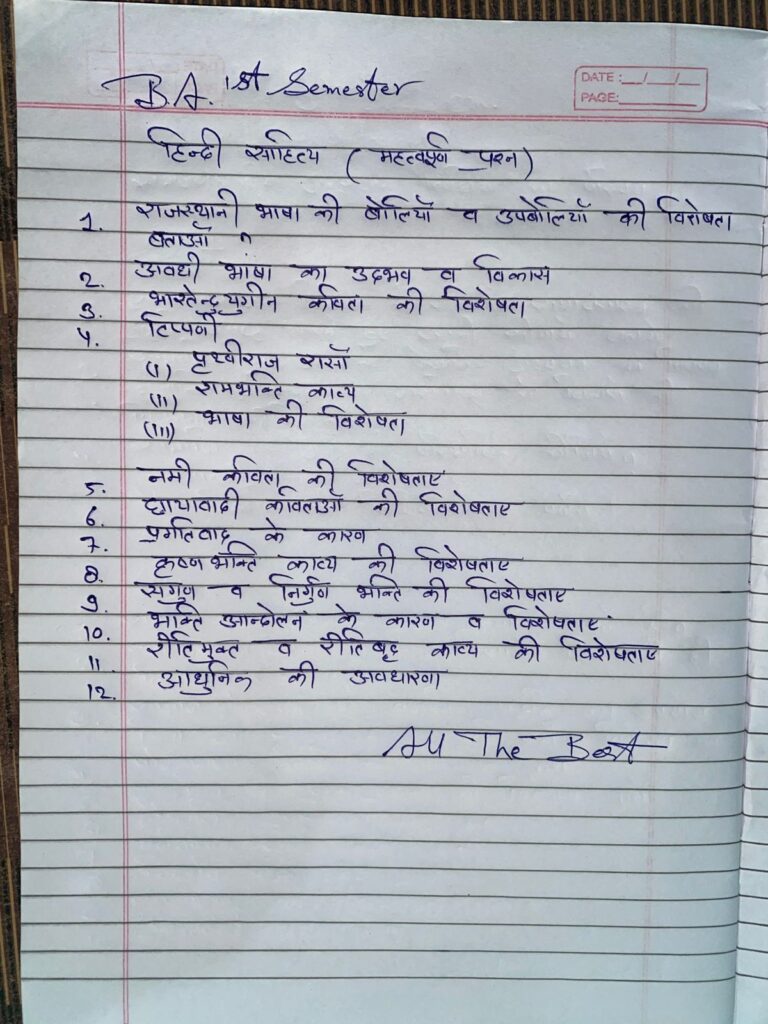 B.A. 1st Semester
DATE: __/__/__
PAGE: ______
हिन्दी साहित्य ( महत्वपूर्ण प्रश्न )
1. राजस्थानी भाषा की बोलियाँ व उपबोलियाँ की विशेषता
बताओं ?
2. अवधी भाषा का उद्भव व विकास
3. भारतेन्दुयुगीन कविता की विशेषता
4. टिप्पणी
(i) पृथ्वीराज रासों
(ii) रामभक्ति काव्य
(iii) भाषा की विशेषता
5. नयी कविता की विशेषताए
6. छायावादी कविताओं की विशेषताए
7. प्रगतिवाद के कारण
8. कृष्णभक्ति काव्य की विशेषताए
9. सगुण व निर्गुण भक्ति की विशेषताए
10. भक्ति आन्दोलन के कारण व विशेषताए
11. रीतिमुक्त व रीतिबद्ध काव्य की विशेषताए
12. आधुनिक की अवधारणा
All The Best